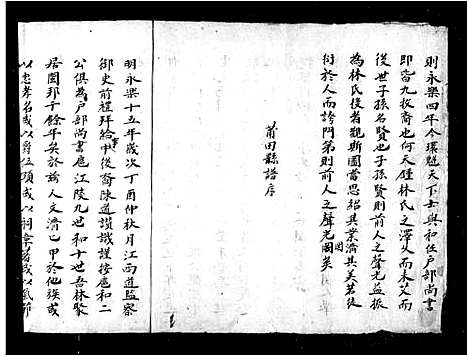 則永樂四年今環魁天下士與和任戶部尚書
即宙九牧裔也何天鍾林氏之澤久而未艾而
後世子孫名賢也子孫賢則前人之聲光益振
為林氏後者觀斯圖當思紹其業濟其美若徒
衍於人而誇門第則前人之聲光圖矣
莆田縣譜序
明永樂十五年歲次丁酉仲秋月江南道監察
御史前禮科給事中後裔陳道讚識謹按宦和二
公俱為戶部尚書宦江陵九世和十世吾林聚
居國邦千餘年矣於茲人文濟濟甲於他族或
以忠孝名或以爵位顯或以詞章著或以氣節